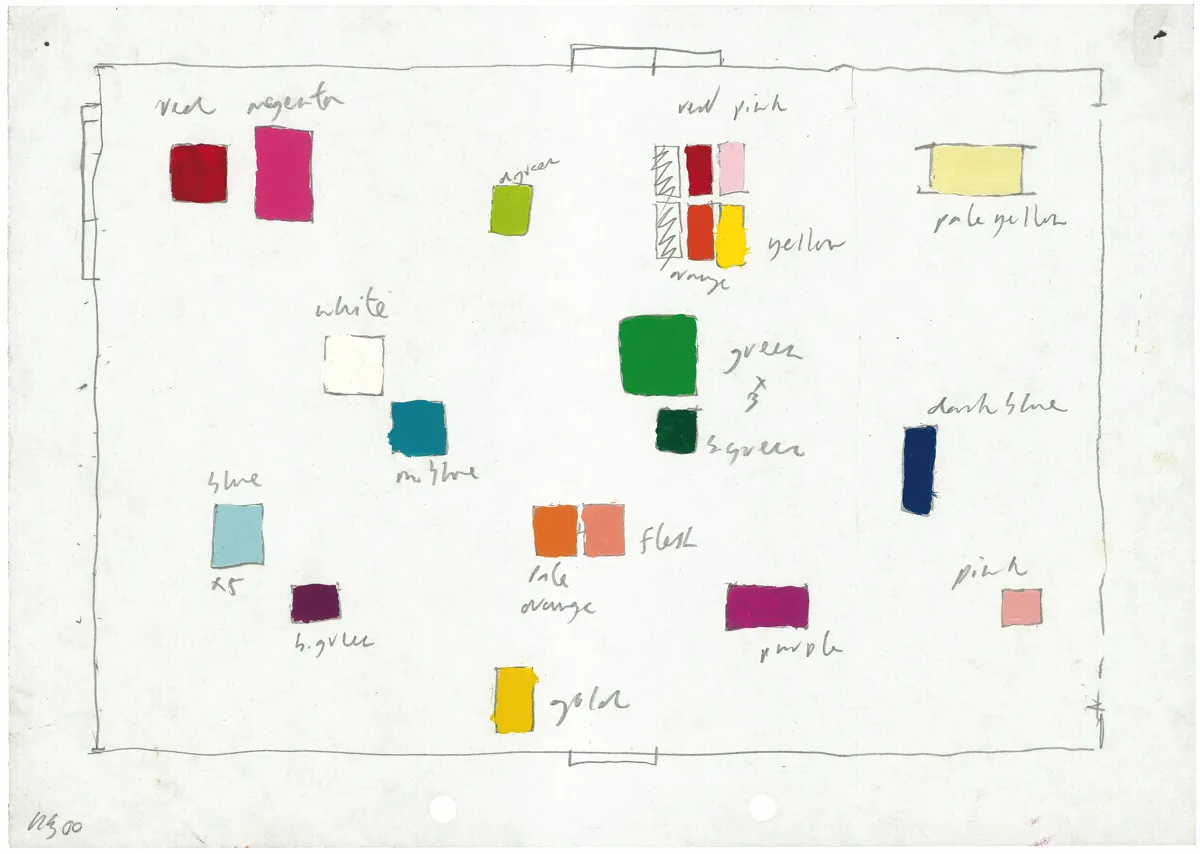 red magenta
red pink
green
pale yellow
yellow
orange
white
green
x
3
dark blue
m. blue
b.green
blue
flesh
x5
pale
orange
pink
b.green
purple
gold